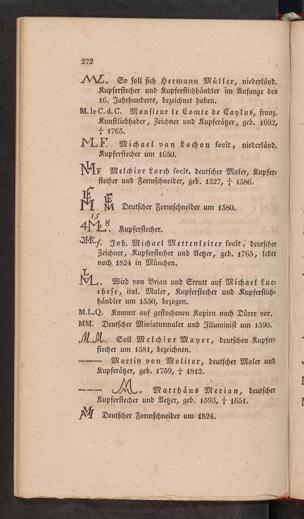 272
ML. So soll sich Hermann Müller, niederländ.
Kupferstecher und Kupferstichhändler im Anfange des
16. Jahrhunderts, bezeichnet haben.
M. le C. d. C. Monsieur le Comte de Caylus, franz.
Kunstliebhaber, Zeichner und Kupferätzer, geb. 1692,
† 1765.
MLF. Michael van Lochon fecit, niederländ.
Kupferstecher um 1650.
MF Melchior Lorch fecit, deutscher Maler, Kupfer-
stecher und Formschneider, geb. 1527, † 1586.
Deutscher Formschneider um 1580.
Kupferstecher.
f. Joh. Michael Mettenleiter fecit, deutscher
Zeichner, Kupferstecher und Aetzer, geb. 1765, lebte
noch 1824 in München.
Wird von Brian und Strutt auf Michael Luc-
chese, ital. Maler, Kupferstecher und Kupferstich-
händler um 1550, bezogen.
M.L.Q. Kommt auf gestochenen Kopien nach Dürer vor.
MM. Deutscher Miniaturmaler und Illuminist um 1590.
M.M. Soll Melchior Mayer, deutschen Kupfer-
stecher um 1581, bezeichnen.
——— Martin von Molitor, deutscher Maler und
Kupferätzer, geb. 1759, † 1812.
——— M. Matthäus Merian, deutscher
Kupferstecher und Aetzer, geb. 1593, † 1651.
Deutscher Formschneider um 1824.